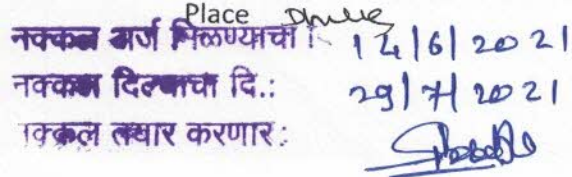 Place Dhule
नक्कल अर्ज मिळण्याचा दि: 14/6/2021
नक्कल दिल्याचा दि.: 29/7/2021
नक्कल तयार करणार: